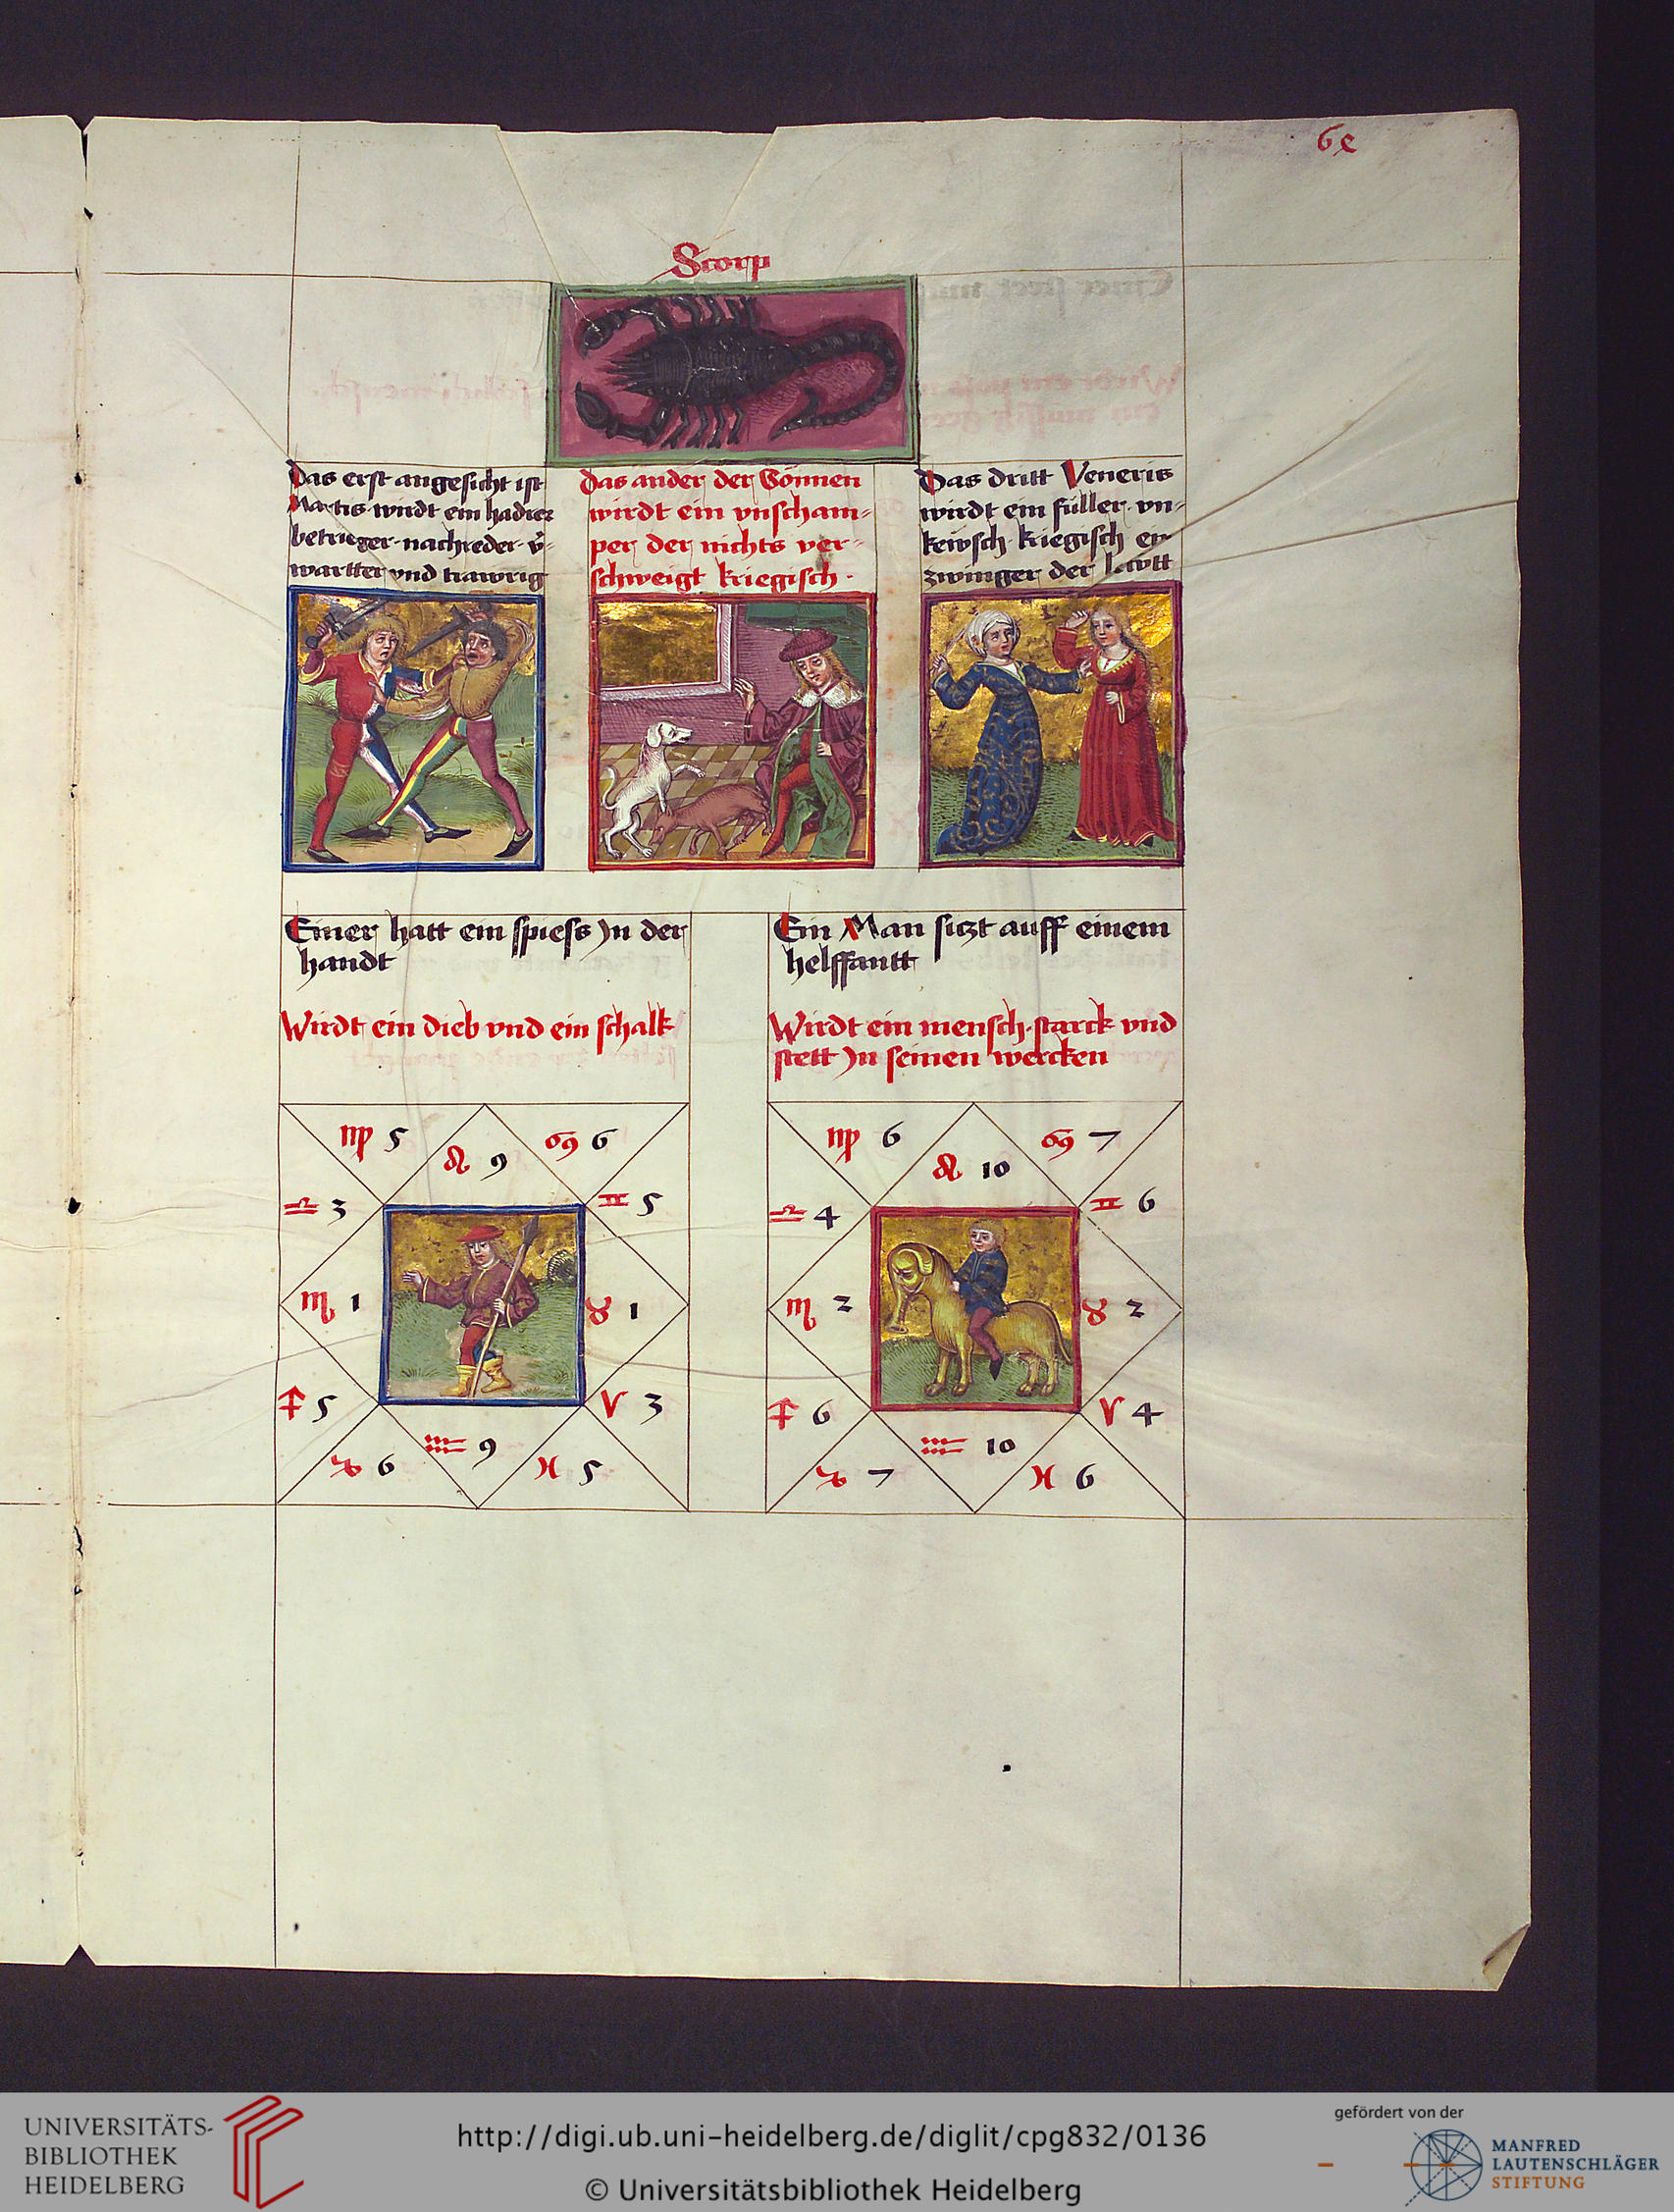 6e
Scorp
Das erst angesicht ist
Martis wirdt ein hadrer
betrieger nachreder v̄-
wartter vnd trawrig
Das ander der Sönnen
wirdt ein vnscham-
per der nichts ver-
schweigt kriegisch.
Das dritt Veneris
wirdt ein füller vn-
kewsch kriegisch ein
zwinger der lewtt
Einer hatt ein spiess Jn der
handt
Wirdt ein dieb vnd ein schalk
Ein Man sitzt auff einem
helffantt
Wirdt ein mensch starck vnd
stett Jn seinen wercken
♍ 5
♌ 9
♋ 6
♎ 3
♊ 5
♏ 1
♉ 1
♐ 5
♈ 3
♑ 6
♒ 9
♓ 5
♍ 6
♌ 10
♋ 7
♎ 4
♊ 6
♏ 2
♉ 2
♐ 6
♈ 4
♑ 7
♒ 10
♓ 6
UNIVERSITÄTS-
BIBLIOTHEK
HEIDELBERG
http://digi.ub.uni-heidelberg.de/diglit/cpg832/0136
© Universitätsbibliothek Heidelberg
gefördert von der
MANFRED
LAUTENSCHLÄGER
STIFTUNG